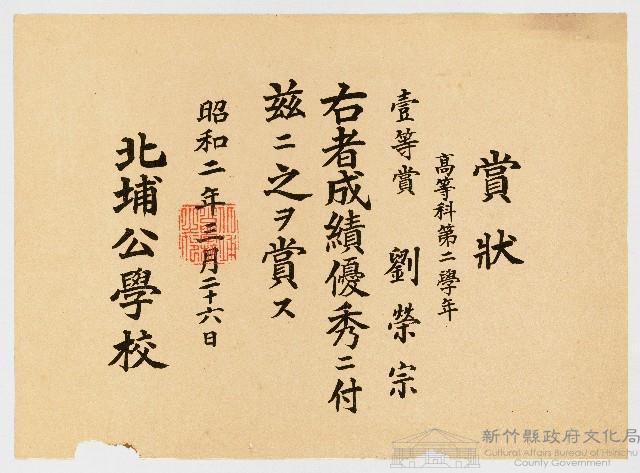 賞狀
高等科第二學年
壹等賞　劉榮宗
右者成績優秀ニ付
玆ニ之ヲ賞ス
昭和二年三月二十六日
北埔公學校
新竹縣政府文化局
Cultural Affairs Bureau of Hsinchu
County Government